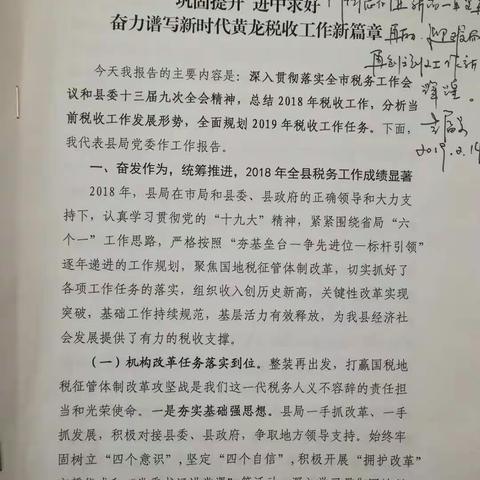 巩固提升 进中求好
奋力谱写新时代黄龙税收工作新篇章
今天我报告的主要内容是：深入贯彻落实全市税务工作会
议和县委十三届九次全会精神，总结 2018 年税收工作，分析当
前税收工作发展形势，全面规划 2019 年税收工作任务。下面，
我代表县局党委作工作报告。
一、奋发作为，统筹推进，2018 年全县税务工作成绩显著
2018 年，县局在市局和县委、县政府的正确领导和大力支
持下，认真学习贯彻党的“十九大”精神，紧紧围绕省局“六
个一”工作思路，严格按照“夯基垒台一争先进位一标杆引领”
逐年递进的工作规划，聚焦国地税征管体制改革，切实抓好了
各项工作任务的落实，组织收入创历史新高，关键性改革实现
突破，基础工作持续规范，基层活力有效释放，为我县经济社
会发展提供了有力的税收支撑。
（一）机构改革任务落实到位。整装再出发，打赢国税地
税征管体制改革攻坚战是我们这一代税务人义不容辞的责任担
当和光荣使命。一是夯实基础强思想。县局一手抓改革、一手
抓发展，积极对接县委、县政府，争取地方领导支持。始终牢
固树立“四个意识”,坚定“四个自信”,积极开展“拥护改革”
2019.2.14